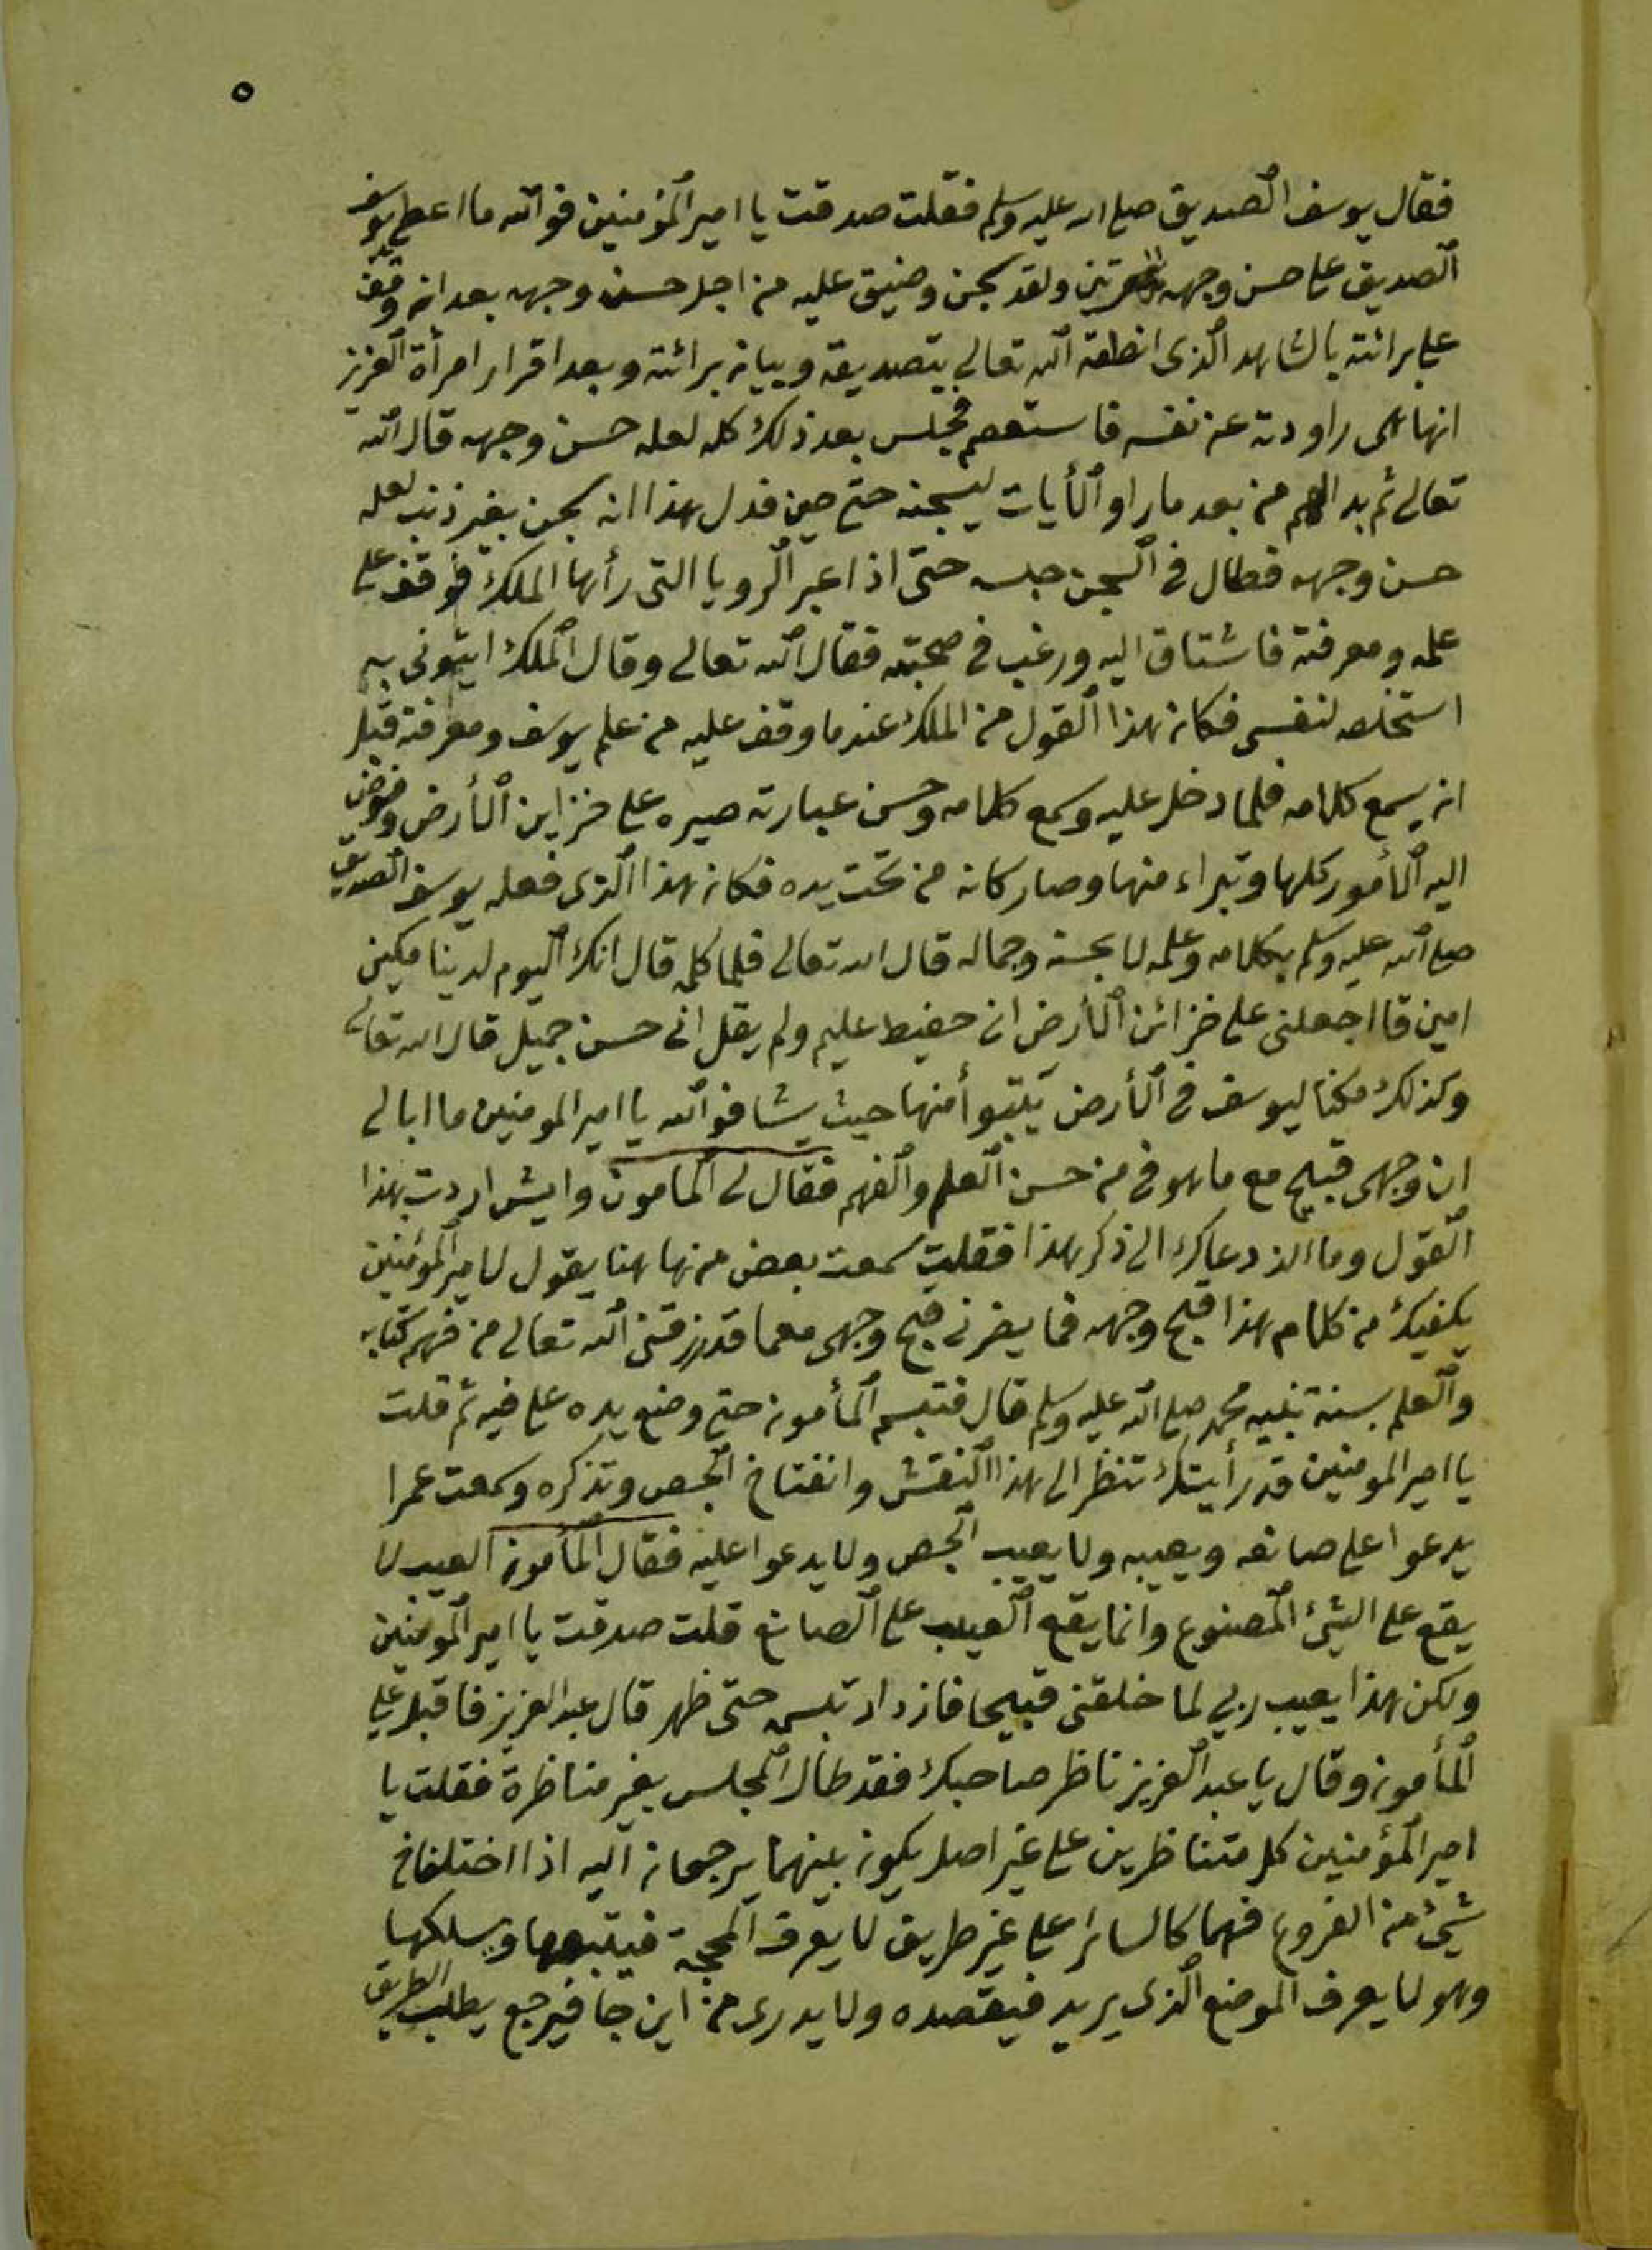 ٥
فقال يوسف الصديق صلى الله عليه وسلم فقلت صدقت يا امير المؤمنين فوالله ما اعطي يوسف
الصديق على حسن وجهه ولقد سجن وضيق عليه من اجل حسن وجهه بعد ان وقف
على برائته بالشاهد الذي انطقه الله تعالى بتصديقه وبيان برائته وبعد اقرار امرأة العزيز
انها هى راودته عن نفسه فاستعصم فحبس بعد ذلك كله لعله حسن وجهه قال الله
تعالى ثم بدا لهم من بعد ما راو الأيات ليسجننه حتى حين فدل هذا انه سجن بغير ذنب لعله
حسن وجهه فطال في السجن حبسه حتى اذا عبر الرويا التى رأها الملك فوقف على
علمه ومعرفته فاشتاق اليه ورغب في صحبته فقال الله تعالى وقال الملك ايتونى به
استخلصه لنفسى فكان هذا القول من الملك عند ما وقف عليه من علم يوسف ومعرفته قبل
ان يسمع كلامه فلما دخل عليه وسمع كلامه وحسن عبارته صيره على خزاين الأرض وفوض
اليه الأمور كلها وتبراء منها وصار كانه من تحت يده فكان هذا الذى فعله يوسف الصديق
صلى الله عليه وسلم بكلامه وعلمه لا بحسنه وجماله قال الله تعالى فلما كلمه قال انك اليوم لدينا مكين
امين قا اجعلنى على خزائن الأرض انى حفيظ عليم ولم يقل انى حسن جميل قال الله تعالى
وكذلك مكنا ليوسف في الأرض يتبوأ منها حيث يشا فوالله يا امير المومنين ما ابالى
ان وجهى قبيح مع ما هو في من حسن العلم والفهم فقال لى المامون وايش اردت بهذا
القول وما الذ دعاك الى ذكر هذا فقلت سمعت بعض من هاهنا يقول لامير المؤمنين
يكفيك من كلام هذا قبح وجهه فما يضرنى قبح وجهى معما قد رزقنى الله تعالى من فهم كتابه
والعلم بسنة نبيه محمد صلى الله عليه وسلم قال فتبسم المأمون حتى وضع يده على فيه ثم قلت
يا امير المومنين قد رأيتك تنظر الى هذا النقش وانفتاخ الجص وتذكره وسمعت عمرا
يدعوا على صانعه ويعيبه ولا يعيب الجص ولا يدعوا عليه فقال المأمون العيب لا
يقع على الشئ المصنوع وانما يقع العيب على الصانع قلت صدقت يا امير المومنين
ولكن هذا يعيب ربى لما خلقنى قبيحا فازداد تبسمه حتى ظهر قال عبد العزيز فاقبل على
المأمون وقال يا عبد العزيز ناظر صاحبك فقد طال المجلس بغير مناظرة فقلت يا
امير المؤمنين كل متناظرين على غير اصل يكون بينهما يرجعان اليه اذا اختلفا في
شئ من الفروع فهما كالساير على غير طريق لا يعرف المحجة فيتبعها ويسلكها
وهو لا يعرف الموضع الذى يريد فيقصده ولا يدرى من اين جا فيرجع يطلب الطريق